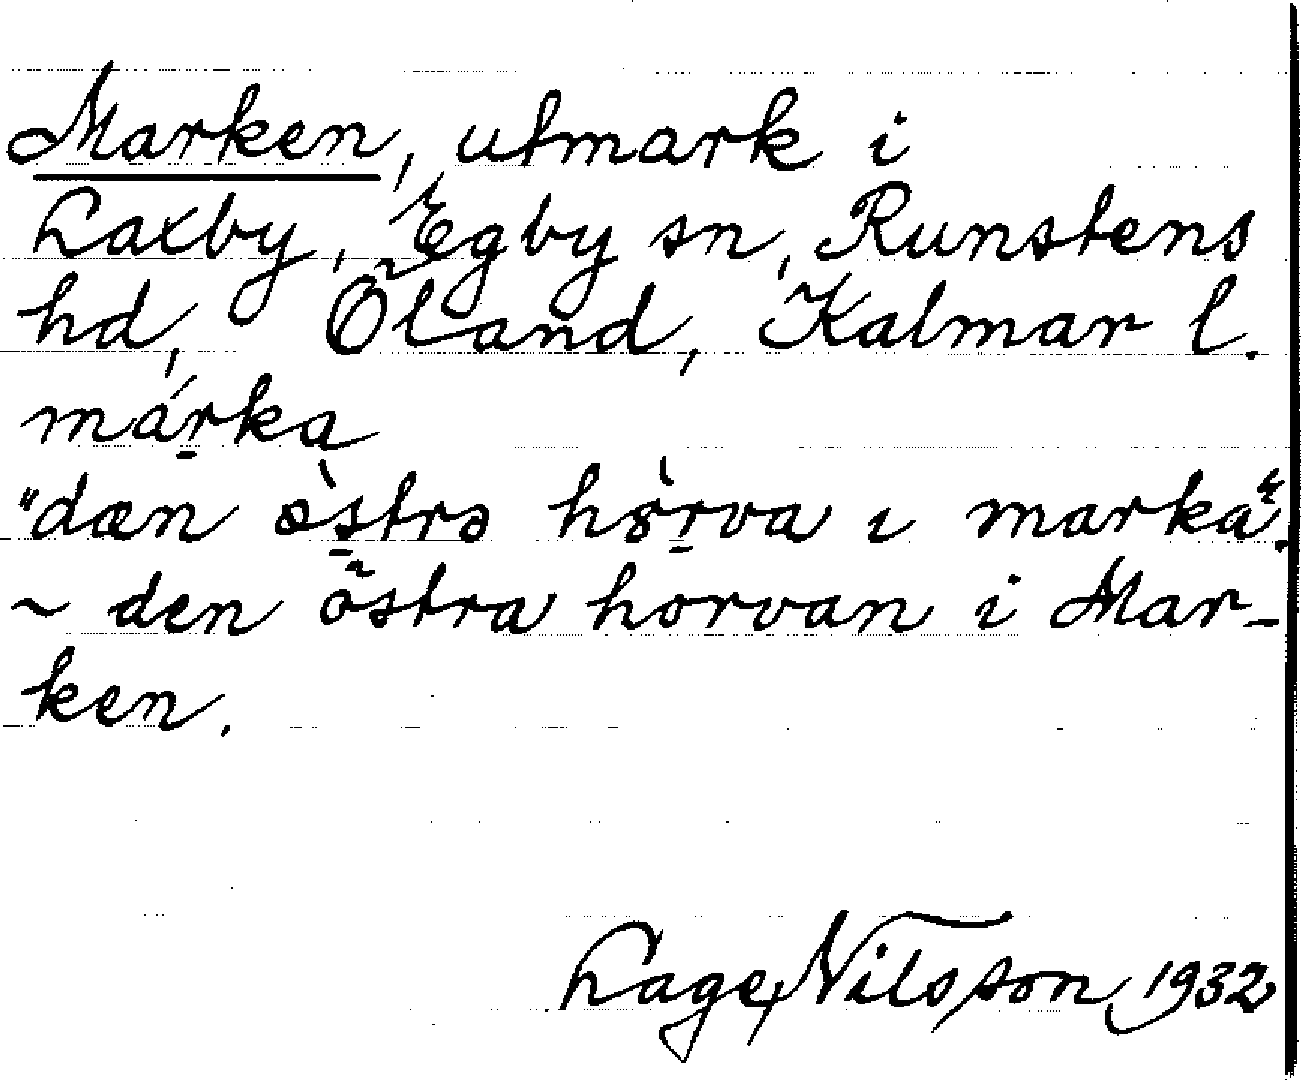 Marken, utmark i
Laxby, Egby sn, Runstens
hd, Öland, Kalmar l.
márka
"dæn östrə hörva ı marka".
~ den östra horvan i Mar-
ken.
Lage Nilsson 1932